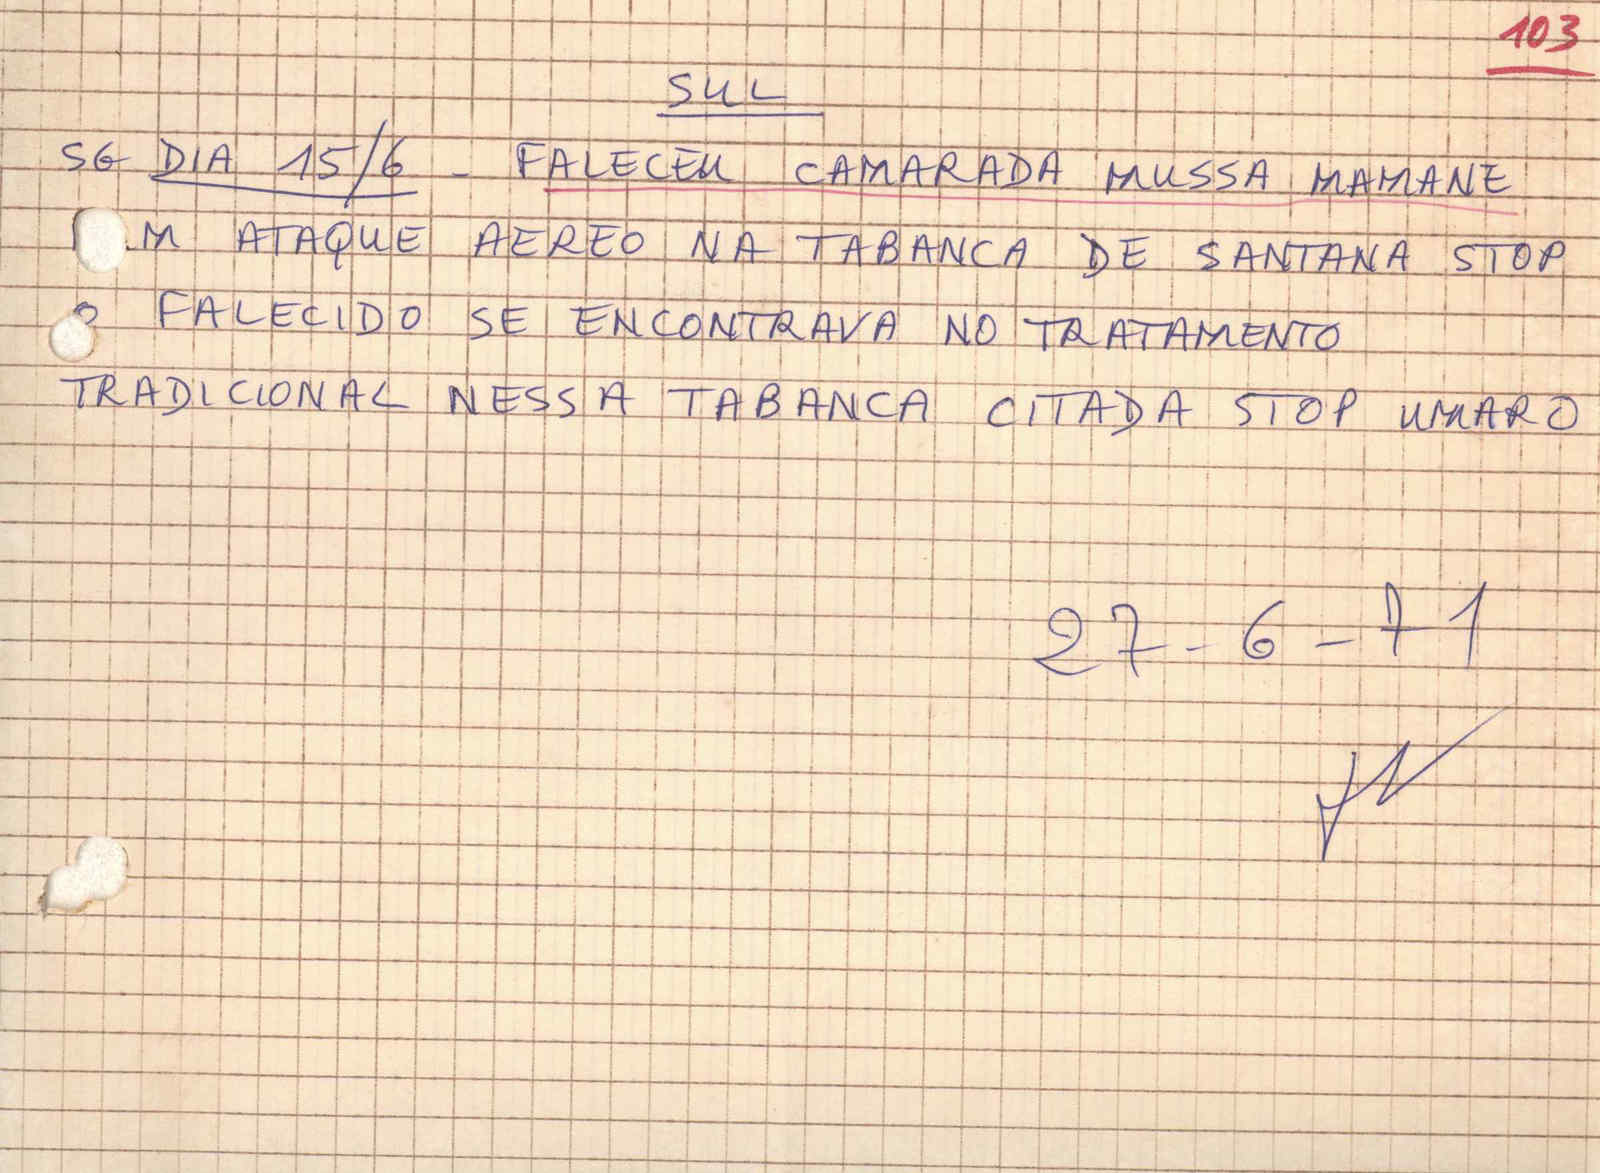 103
SUL
SG DIA 15/6 - FALECEU CAMARADA MUSSA MAMANE
M ATAQUE AEREO NA TABANCA DE SANTANA STOP
O FALECIDO SE ENCONTRAVA NO TRATAMENTO
TRADICIONAL NESSA TABANCA CITADA STOP UMARO
27-6-71